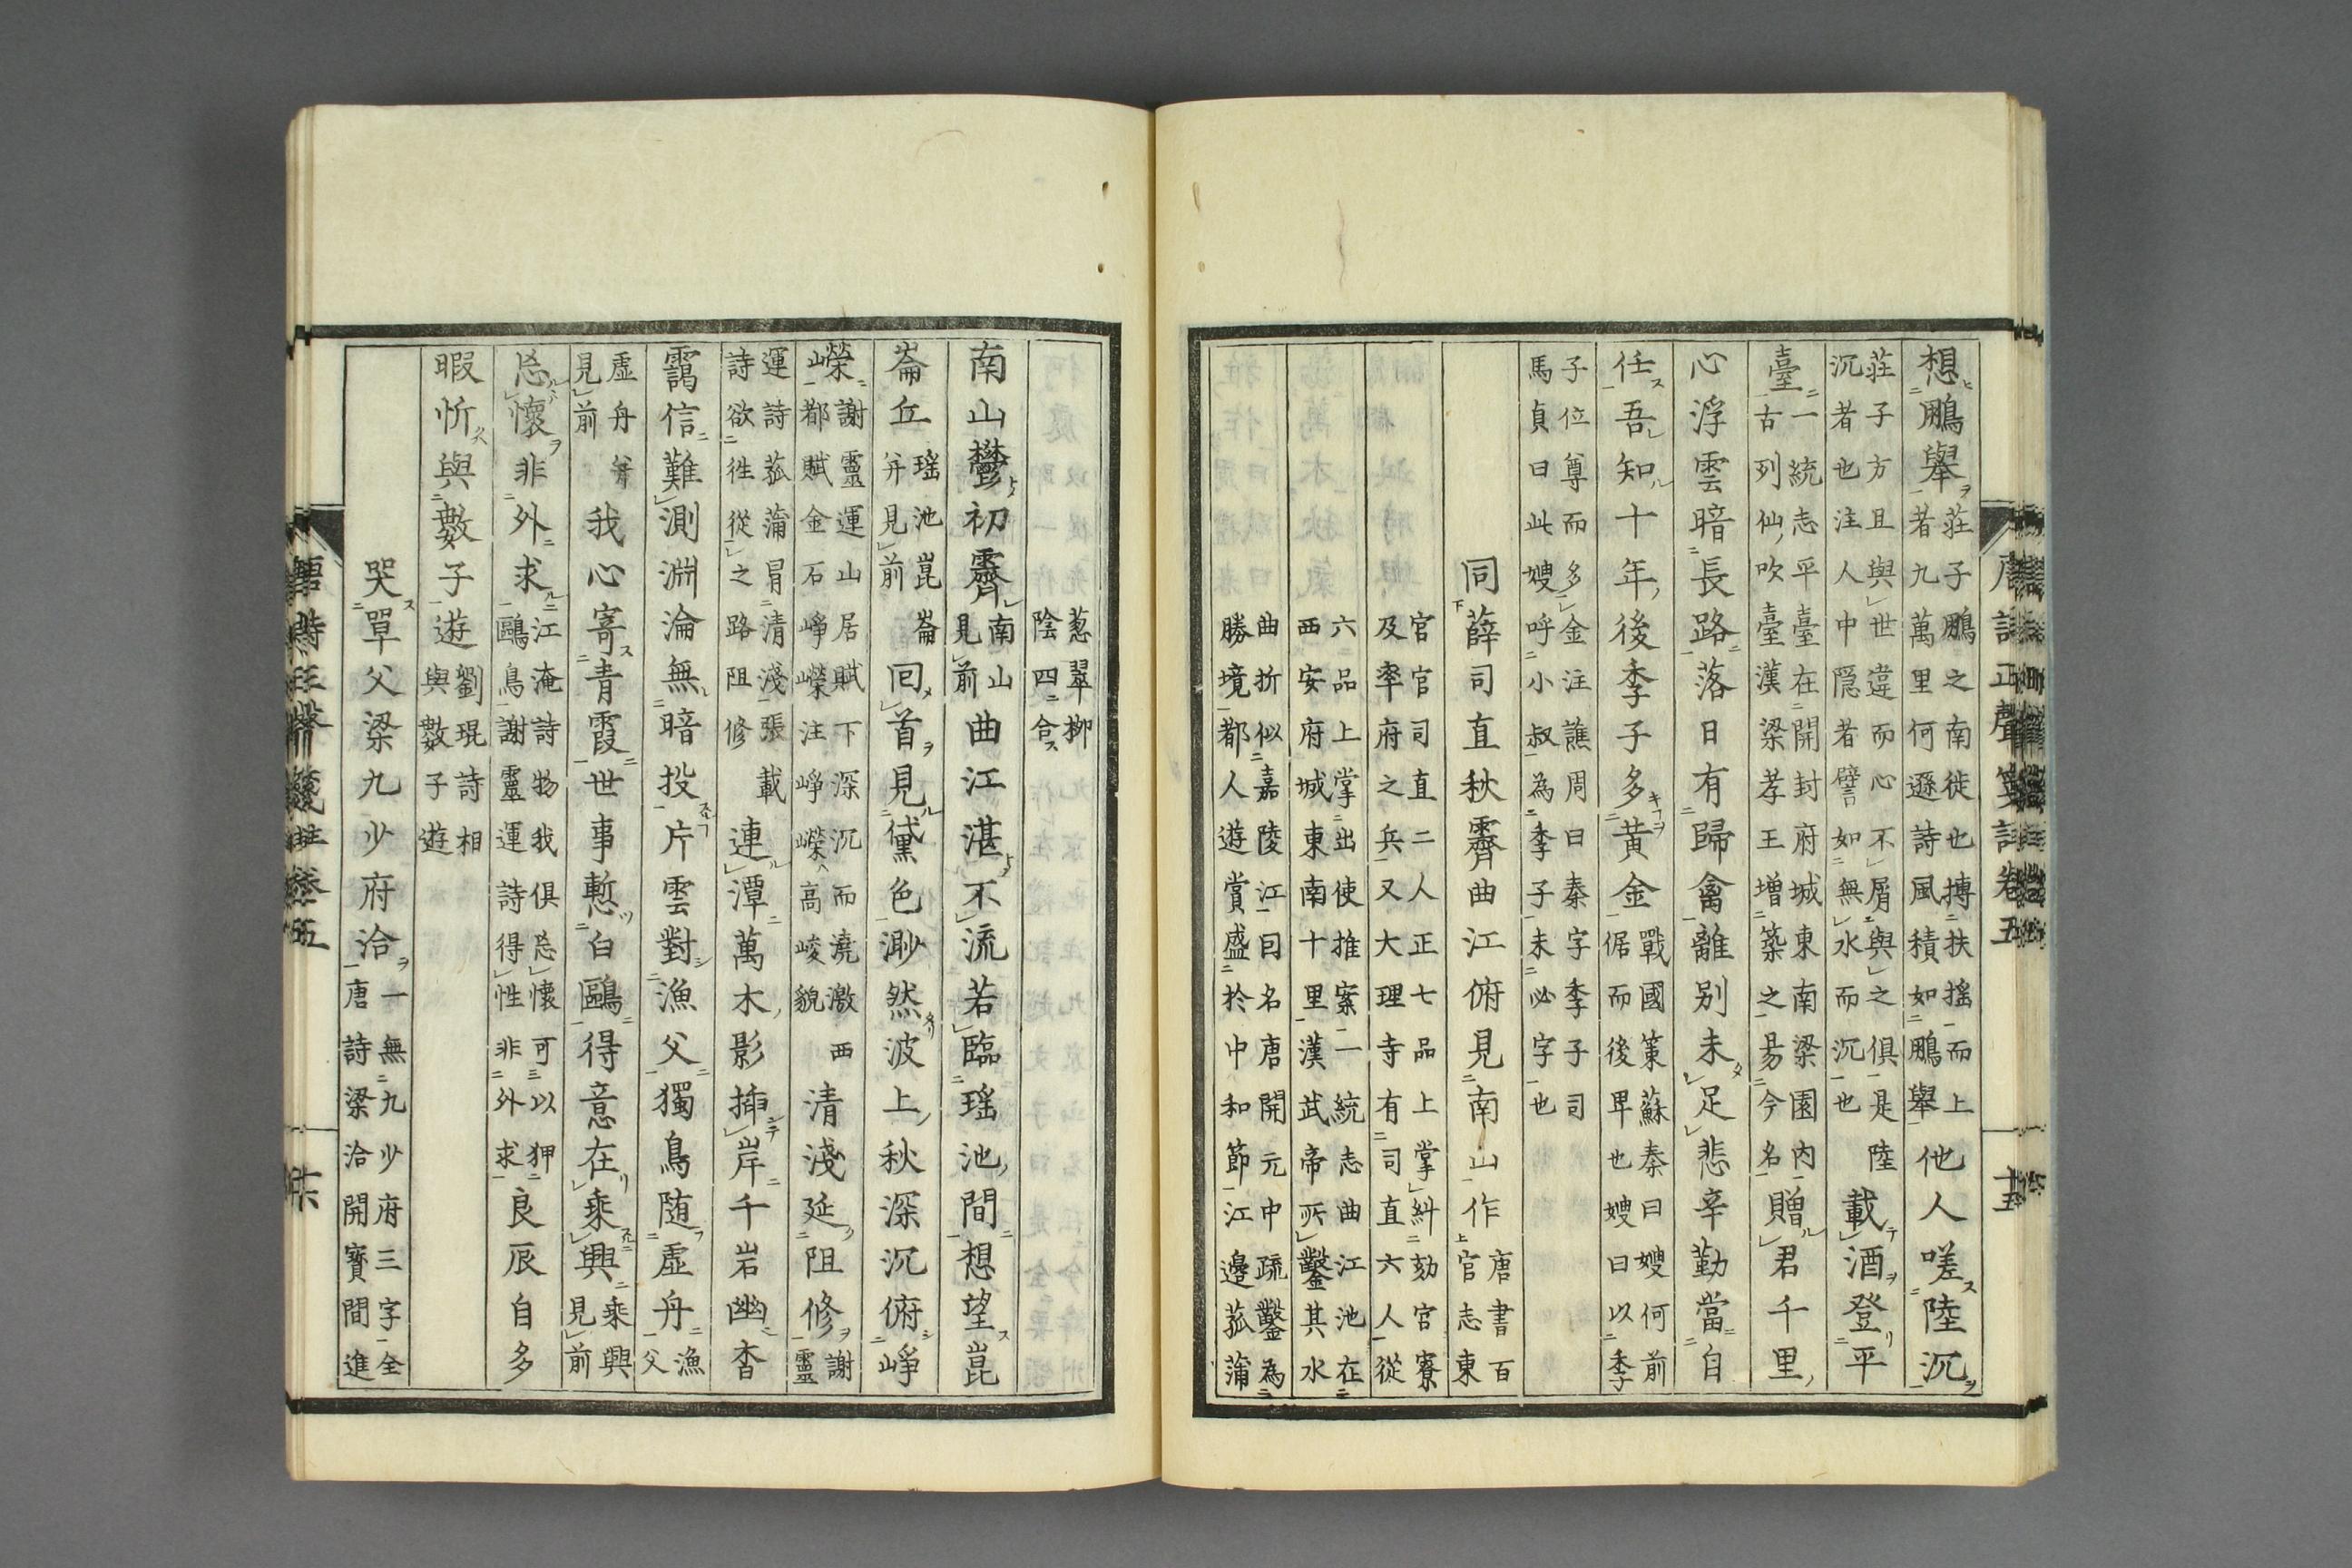 唐詩正聲箋註卷五 十五
想鵬舉莊子鵬之南徙也摶扶搖而上者九萬里何遜詩風積如鵬舉他人嗟陸沉
莊子方且與世違而心不屑與之俱是陸沉者也注人中隱者譬如無水而沉也載酒登平
臺一統志平臺在開封府城東南梁園內古列仙吹臺漢梁孝王增築之易今名贈君千里
心浮雲暗長路落日有歸禽離别未足悲辛勤當自
任吾知十年後季子多黃金戰國策蘇秦曰嫂何前倨而後畢也嫂曰以季
子位尊而多金注譙周曰秦字季子司馬貞曰此嫂呼小叔為季子未必字也
同薛司直秋霽曲江俯見南山作唐書百官志東
官官司直二人正七品上掌糾劾官寮及率府之兵又大理寺有司直六人從
六品上掌出使推案一統志曲江池在西安府城東南十里漢武帝所鑿其水
曲折似嘉陵江囙名唐開元中疏鑿為勝境都人遊賞盛於中和節江邊菰蒲
葱翠柳陰四合
南山鬱初霽南山見前曲江湛不流若臨瑤池間想望崑
崙丘瑤池崑崙并見前回首見黛色渺然波上秋深沉俯崢
嶸謝靈運山居賦下深沉而澆激西都賦金石崢嶸注崢嶸高峻貌清淺延阻修謝靈
運詩菰蒲冒清淺張載詩欲往從之路阻修連潭萬木影插岸千岩幽杳
靄信難測淵淪無暗投片雲對漁父獨鳥随虛舟漁父
虛舟并見前我心寄青霞世事慙白鷗得意在乘興乘興見前
忘懷非外求江淹詩物我俱忘懷可以狎鷗鳥謝靈運詩得性非外求良辰自多
暇忻與數子遊劉琨詩相與數子遊
哭單父梁九少府洽一無九少府三字全唐詩梁洽開寶間進
唐詩正聲箋註卷五 十六